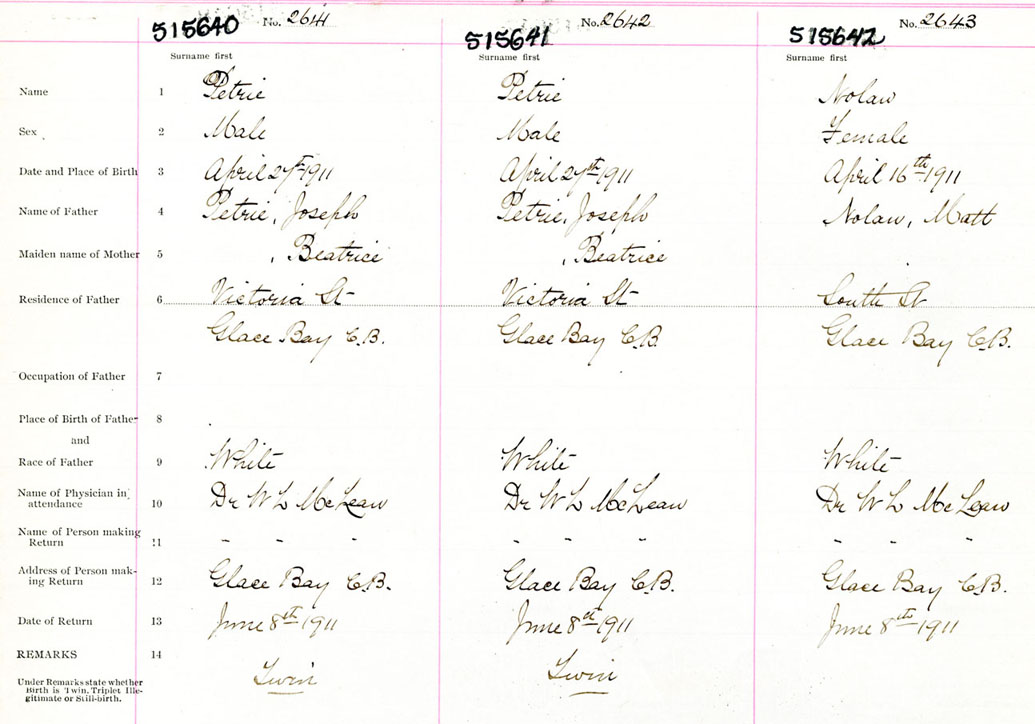 515640 No. 2641 515641 No. 2642 515642 No. 2643
Surname first Surname first Surname first
Name 1 Petrie Petrie Nolan
Sex 2 Male Male Female
Date and Place of Birth 3 April 27th 1911 April 27th 1911 April 16th 1911
Name of Father 4 Petrie, Joseph Petrie, Joseph Nolan, Matt
Maiden name of Mother 5 , Beatrice , Beatrice
Residence of Father 6 Victoria St Victoria St South St
Glace Bay C.B. Glace Bay C.B. Glace Bay C.B.
Occupation of Father 7
Place of Birth of Father 8
and
Race of Father 9 White White White
Name of Physician in
attendance 10 Dr W L McLean Dr W L McLean Dr W L McLean
Name of Person making
Return 11 " " " " " " " " "
Address of Person mak-
ing Return 12 Glace Bay C.B. Glace Bay C.B. Glace Bay C.B.
Date of Return 13 June 8th 1911 June 8th 1911 June 8th 1911
REMARKS 14
Twin Twin
Under Remarks state whether
Birth is Twin, Triplet Ille-
gitimate or Still-birth.